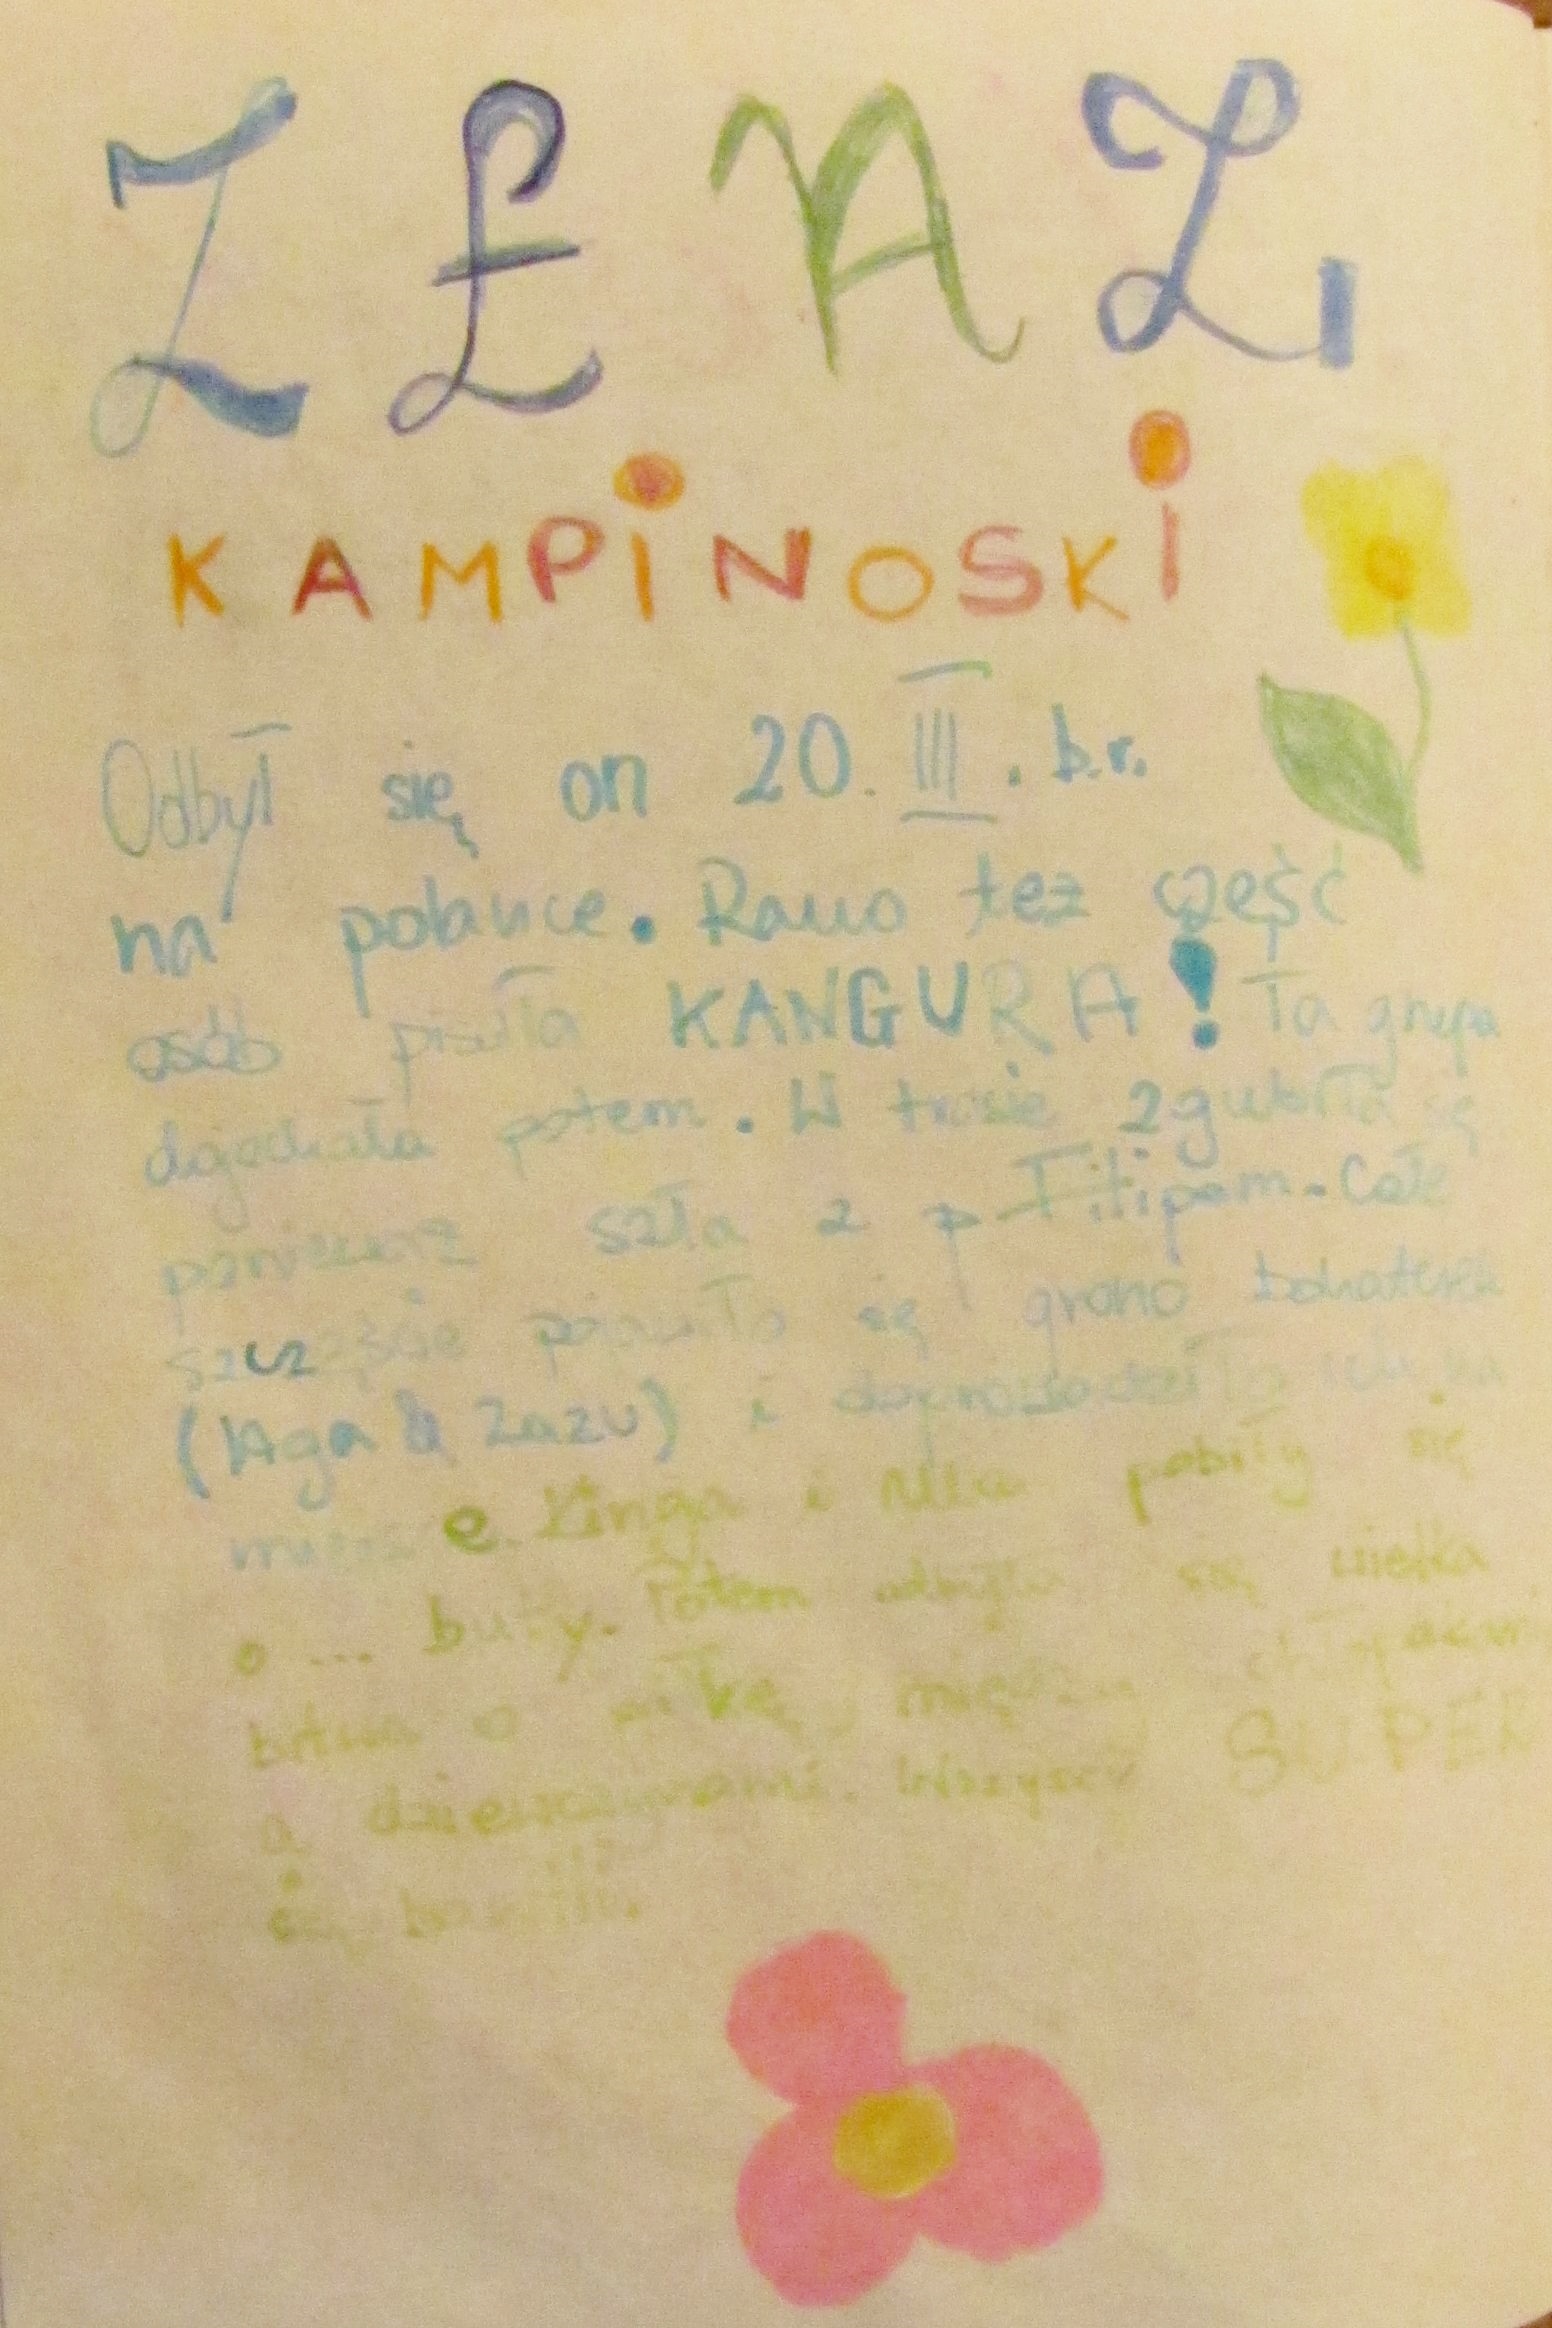 ZŁAZ
KAMPINOSKI
Odbył się on 20. III. b.r.
na polance. Rano też część
osób pisała KANGURA! Ta grupa
dojechała potem. W trasie zgubiła się
ponieważ szła z p Filipem. Całe
szczęście pojawiło się grono bohaterek
(Aga & Zazu) i doprowadziło ich na
miejsce. Kinga i Ala pobiły się
o ... buty. Potem odbyła się wielka
bitwa o piłkę, między chłopakami
a dziewczynami. Wszyscy SUPER
się bawili.